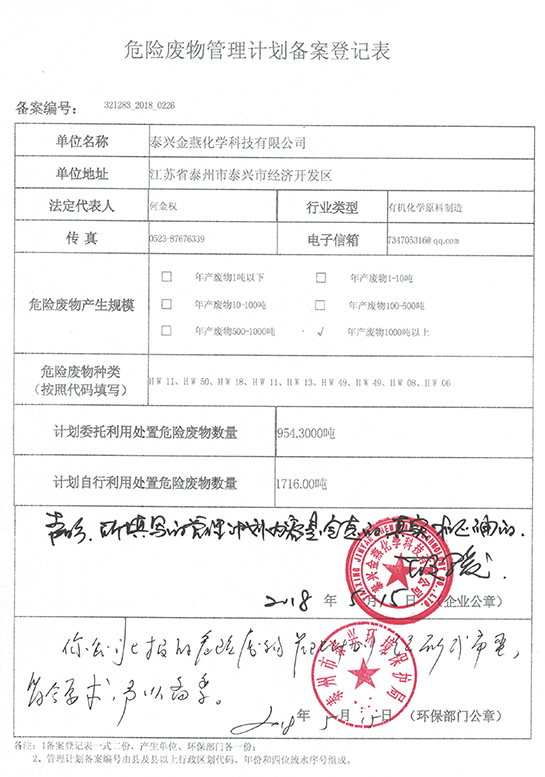 危险废物管理计划备案登记表
备案编号： 321283_2018_0226
单位名称 泰兴金燕化学科技有限公司
单位地址 江苏省泰州市泰兴市经济开发区
法定代表人 何金权 行业类型 有机化学原料制造
传真 0523-87676339 电子信箱 734705316@qq.com
危险废物产生规模
□ 年产废物1吨以下 □ 年产废物1-10吨
□ 年产废物10-100吨 □ 年产废物100-500吨
□ 年产废物500-1000吨 √ 年产废物1000吨以上
危险废物种类
（按照代码填写）
HW 11、HW 50、HW 18、HW 11、HW 13、HW 49、HW 49、HW 08、HW 06
计划委托利用处置危险废物数量 954.3000吨
计划自行利用处置危险废物数量 1716.00吨
所填写的管理计划内容是 真实和正确的.
泰兴金燕化学科技有限公司
2018 年 5 月 15 日 （企业公章）
你公司上报的危险废物
符合要求，予以备案。
泰州市泰兴环境保护局
2018 年 5 月 15 日 （环保部门公章）
备注：1备案登记表一式二份，产生单位、环保部门各一份；
2、管理计划备案编号由县及县以上行政区划代码、年份和四位流水序号组成。